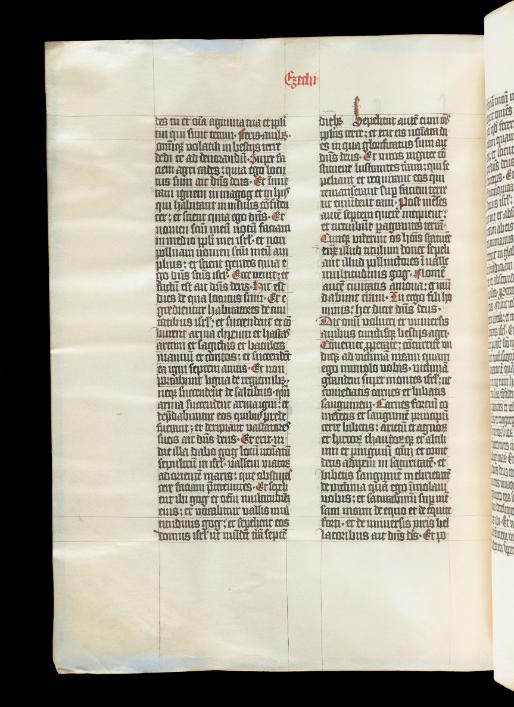 Ezechi
des tu et oīa agmina tua et ppli
tui qui sunt tecum. Feris auibȝ
omīqȝ volatili et bestijs terre
dedi te ad deuorandū. Super fa
ciem agri cades: quia ego locu
tus sum ait dn̄s deus. Et īmit
tam ignem in magog et in hijs
qui habitant in insulis cōfiden
ter: et scient quia ego dn̄s. Et
nomen scm̄ meū notū faciam
in medio ppli mei isrl̄: et non
polluam nomen scm̄ meū am
plius: et scient gentes quia e
go dn̄s scūs isrl̄. Ecce venit: et
factū est ait dn̄s deus. Hec est
dies de qua locutus sum. Et e
gredientur habitatores de ciui
tatibus isrl̄: et succendent et cō
burent arma clypeum et hastas
arcum et sagittas et baculos
manuū et contos: et succendēt
ea igni septem annis. Et non
portabunt ligna de regionibȝ
neqȝ succident de saltibus: qm̄
arma succendent igni: et
depdabuntur eos quibus prede
fuerant: et diripient vastatores
suos ait dn̄s deus. Et erit in
die illa dabo gog locū noīatū
sepulcrū in isrl̄: vallem viatoȝ
ad orientē maris: que obstupes
cere faciam p̄tereuntes. Et sepeli
ent ibi gog et oēm multitudinē
eius: et vocabitur vallis mul
titudinis gog: et sepelient eos
domus isrl̄ ut mūdēt t̄rā septē
diebȝ. Sepeliet autē eum oīs
ppl̄us terre: et erit eis noīata di
es in qua glorificatus sum ait
dn̄s deus. Et viros iugiter cō
stituent lustrantes terrā: qui se
peliant et requirant eos qui
remanserant sup faciem terre
ut emūdent eam. Post menses
autē septem querere incipient:
et circuibunt pagrantes terrā.
Cumqȝ viderint os hoīs statuēt
iuxta illud titulum donec sepeli
ant illud pollinctores ī valle
multitudinis gog. Nomen
autē ciuitatis amona: et mū
dabunt terram. Tu ergo fili ho
minis: hec dicit dn̄s deus.
Dic omī volucri et vniuersis
auibus cunctisqȝ bestijs agri.
Conuenite, pperate: concurrite vn
diqȝ ad victimā meam quam
ego immolo vobis: victimā
grandem super montes isrl̄: ut
comedatis carnes et bibatis
sanguinem. Carnes fortiū co
medetis et sanguinē principū
terre bibetis: arietū et agnoȝ
et hircoȝ thauroȝqȝ et altili
um et pinguiū oīm: et come
detis adipem in saturitatē: et
bibetis sanguinē in ebrietatē
de victima quā ego īmolaui
vobis: et saturabimī sup mē
sam meam de equo et de equite
forti. et de vniuersis viris bel
latoribus ait dn̄s ds̄. Et po